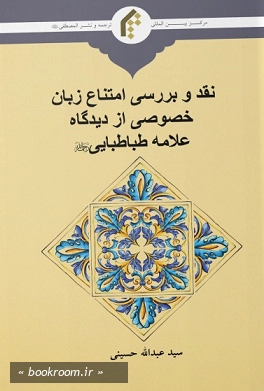 مرکز بین المللی ترجمه و نشر المصطفی ﷺ
نقد و بررسی امتناع زبان
خصوصی از دیدگاه
علامه طباطبایی
سید عبدالله حسینی
« bookroom.ir »